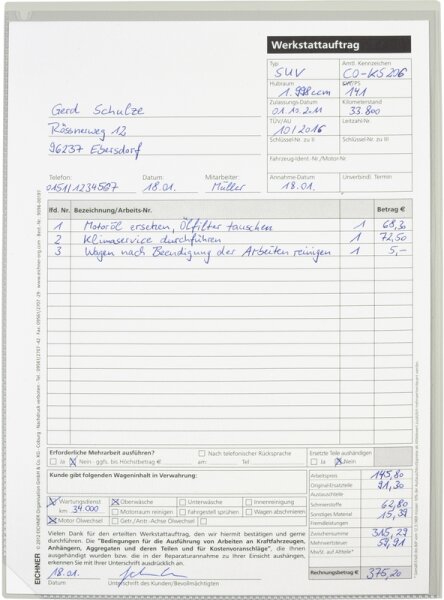 Werkstattauftrag
Typ Amtl. Kennzeichen
SUV CO-KS 206
Hubraum kW/PS
1.998 ccm 141
Zulassungs-Datum Kilometerstand
01.10.2011 33.800
TÜV/AU Leitzahl-Nr.
10/2016
Schlüssel-Nr. zu II Schlüssel-Nr. zu III
Fahrzeug-Ident.-Nr./Motor-Nr.
Annahme-Datum Unverbindl. Termin
18.01.
Gerd Schulze
Rössnerweg 12
96237 Ebersdorf
Telefon: Datum: Mitarbeiter
0151/1234567 18.01. Müller
lfd. Nr. Bezeichnung/Arbeits-Nr. Betrag €
1 Motoröl ersetzen, Ölfilter tauschen 1 68,30
2 Klimaservice durchführen 1 72,50
3 Wagen nach Beendigung der Arbeiten reinigen 1 5,-
Erforderliche Mehrarbeit ausführen? Nach telefonischer Rücksprache
Ja Nein - ggfs. bis Höchstbetrag € am: Tel.
Ersetzte Teile aushändigen
Ja Nein
Kunde gibt folgenden Wageninhalt in Verwahrung:
Wartungsdienst Oberwäsche Unterwäsche Innenreinigung
km 34.000 Motorraum reinigen Fahrgestell sprühen Wagen abschmieren
Motor Ölwechsel Getr./Antr.-Achse Ölwechsel
Arbeitspreis 145,80
Original-Ersatzteile 91,30
Austauschteile
Schmierstoffe 62,80
Sonstiges Material
Fremdleistungen
Zwischensumme
Mehrwertsteuer
MwSt. auf Altteile*
Rechnungsbetrag € 375,20
Vielen Dank für den erteilten Werkstattauftrag, den wir hiermit bestätigen und gerne
durchführen. Die "Bedingungen für die Ausführung von Arbeiten an Kraftfahrzeugen,
Anhängern, Aggregaten und deren Teilen und für Kostenvoranschläge", die Ihnen
ausgehändigt wurden bzw. die in der Reparaturannahme zu Ihrer Einsicht aushängen,
erkennen Sie mit Ihrer Unterschrift ausdrücklich an.
18.01.
Datum Unterschrift des Kunden/Bevollmächtigten
EICHNER